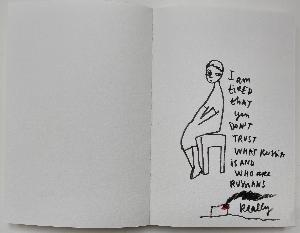 I am
tiRED
that
you
DON'T
TRUST
WHAT RUSSIA
IS AND
WHO ARE
RUSSIANS
Really